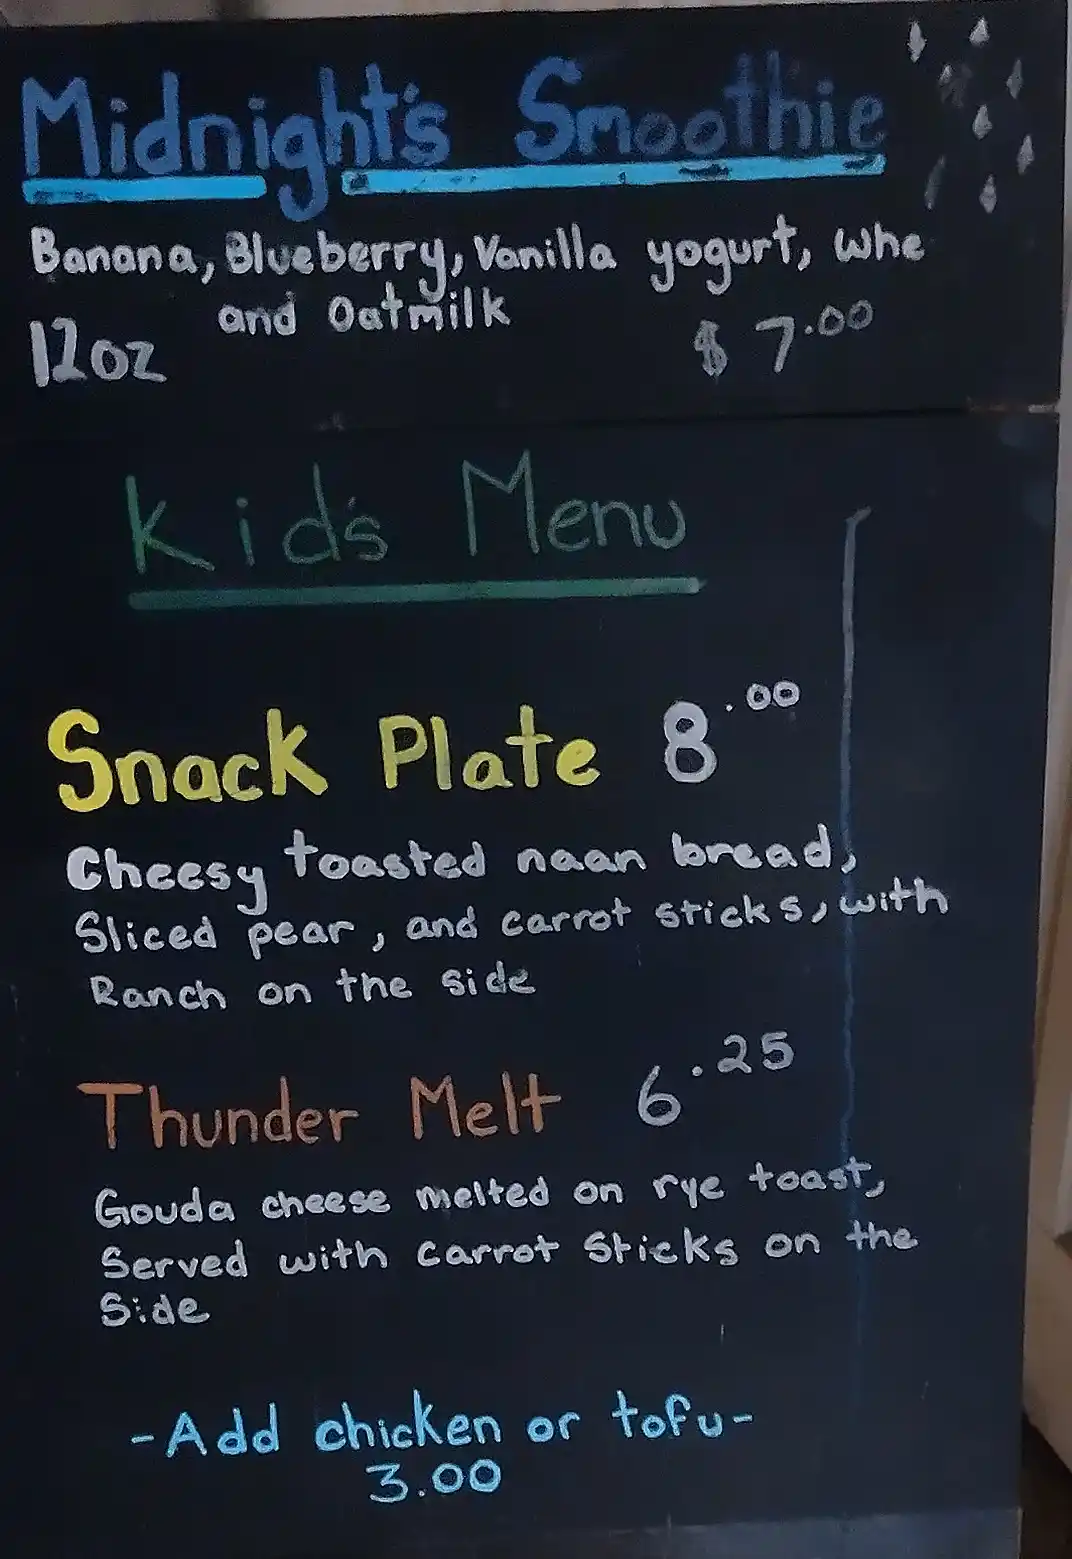 Midnight's Smoothie
Banana, Blueberry, Vanilla yogurt, Whe
and Oatmilk
12oz $ 7.00
Kid's Menu
Snack Plate 8.00
Cheesy toasted naan bread,
Sliced pear, and carrot sticks, with
Ranch on the side
Thunder Melt 6.25
Gouda cheese melted on rye toast,
Served with carrot Sticks on the
Side
-Add chicken or tofu-
3.00